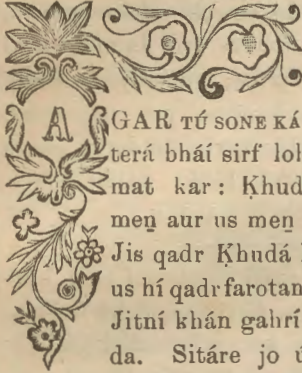 AGAR TÚ SONE KÁ
terá bháí sirf loh
mat kar: Ḵhud
meṉ aur us meṉ
Jis qadr Ḵhudá
us hí qadr farotan
Jitní khán gahrí
da. Sitáre jo ú